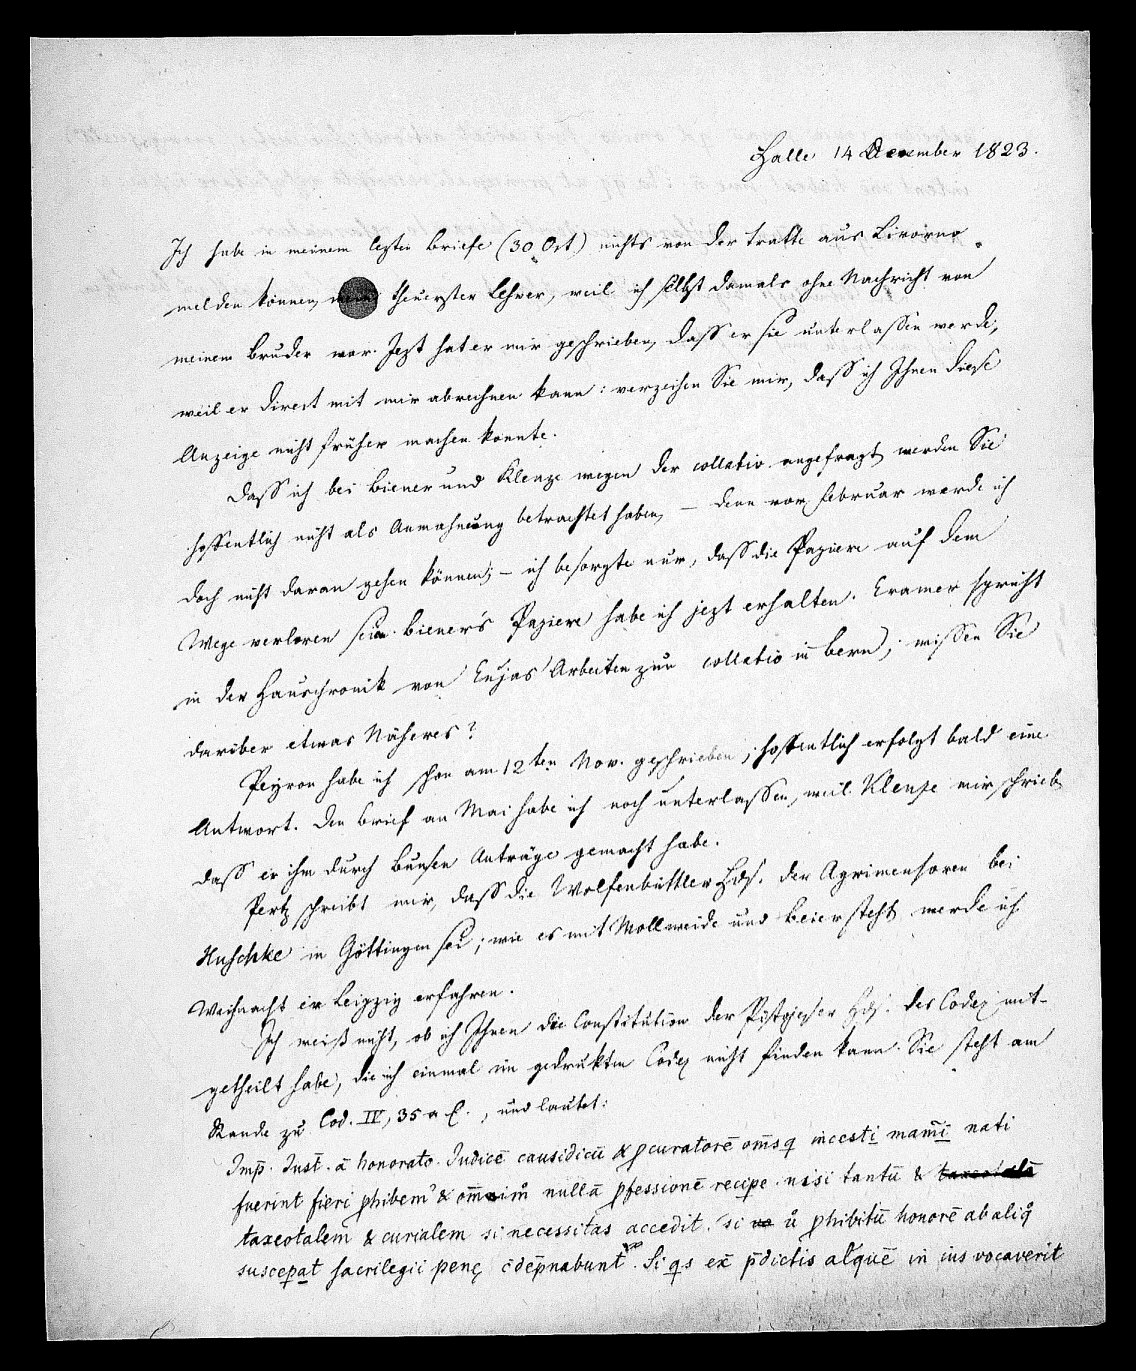 Halle 14 December 1823.
Ich habe in meinem lezten Briefe (30 Oct) nichts von der tratte aus Livorno
melden können, theuerster Lehrer, weil ich selbst damals ohne Nachricht von
meinem Bruder war. Jezt hat er mir geschrieben, dass er sie unterlassen werde,
weil er direct mit mir abrechnen kann: verzeihen Sie mir, dass ich Ihnen diese
Anzeige nicht früher machen konnte.
Dass ich bei Biener und Klenze wegen der collatio angefragt werden Sie
hoffentlich nicht als Anmahnung betrachtet haben, – denn vor Februar werde ich
doch nicht daran gehen können; – ich besorgte nur, dass die Papiere auf dem
Wege verloren seien. Biener's Papiere habe ich jezt erhalten. Cramer spricht
in der Hauschronik von Cujas Arbeiten zur collatio in Bern; wissen Sie
darüber etwas Näheres?
Peyron habe ich schon am 12ten Nov. geschrieben; hoffentlich erfolgt bald eine
Antwort. Den Brief an Mai habe ich noch unterlassen, weil Klenze mir schrieb,
dass er ihm durch Bunsen Anträge gemacht habe.
Pertz schreibt mir, dass die Wolfenbüttler Hds. der Agrimensoren bei
Huschke in Göttingen sei; wie es mit Mollweide und Beier steht werde ich
Weihnacht in Leipzig erfahren.
Ich weiß nicht, ob ich Ihnen die Constitution der Pistojeser Hds. des Codex mit-
getheilt habe, die ich einmal im gedruckten Codex nicht finden kann. Sie steht am
Rande zu Cod. IV, 35 a E., und lautet:
Imp̄. Iust. ā honorato. Iudicē causidicū & ꝓcuratorē om̄sq incesti mam̄i nati
fuerint fieri ꝓhibem' & nullā ꝓfessionē recipe nisi tantū &
taxeotalem & curialem si necessitas accedit. Si ꝓhibitū honorē ab aliq
suscepat sacrilegii penę cōdēpnabunt. Si qs ex p̄dictis alquē in ius vocaverit